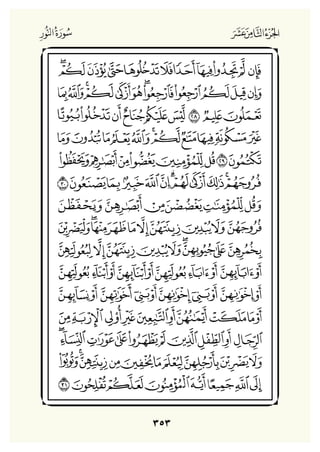 الجُزءُ الثَّامِنَ عَشَرَ
سُورَةُ النُّورِ
فَإِن لَّمْ تَجِدُوا۟ فِيهَآ أَحَدًا فَلَا تَدْخُلُوهَا حَتَّىٰ يُؤْذَنَ لَكُمْ ۖ
وَإِن قِيلَ لَكُمُ ٱرْجِعُوا۟ فَٱرْجِعُوا۟ ۖ هُوَ أَزْكَىٰ لَكُمْ ۚ وَٱللَّهُ بِمَا
تَعْمَلُونَ عَلِيمٌ ٢٨ لَّيْسَ عَلَيْكُمْ جُنَاحٌ أَن تَدْخُلُوا۟ بُيُوتًا
غَيْرَ مَسْكُونَةٍ فِيهَا مَتَٰعٌ لَّكُمْ ۚ وَٱللَّهُ يَعْلَمُ مَا تُبْدُونَ وَمَا
تَكْتُمُونَ ٢٩ قُل لِّلْمُؤْمِنِينَ يَغُضُّوا۟ مِنْ أَبْصَٰرِهِمْ وَيَحْفَظُوا۟
فُرُوجَهُمْ ۚ ذَٰلِكَ أَزْكَىٰ لَهُمْ ۗ إِنَّ ٱللَّهَ خَبِيرٌۢ بِمَا يَصْنَعُونَ ٣٠
وَقُل لِّلْمُؤْمِنَٰتِ يَغْضُضْنَ مِنْ أَبْصَٰرِهِنَّ وَيَحْفَظْنَ
فُرُوجَهُنَّ وَلَا يُبْدِينَ زِينَتَهُنَّ إِلَّا مَا ظَهَرَ مِنْهَا ۖ وَلْيَضْرِبْنَ
بِخُمُرِهِنَّ عَلَىٰ جُيُوبِهِنَّ ۖ وَلَا يُبْدِينَ زِينَتَهُنَّ إِلَّا لِبُعُولَتِهِنَّ
أَوْ ءَابَآئِهِنَّ أَوْ ءَابَآءِ بُعُولَتِهِنَّ أَوْ أَبْنَآئِهِنَّ أَوْ أَبْنَآءِ بُعُولَتِهِنَّ
أَوْ إِخْوَٰنِهِنَّ أَوْ بَنِىٓ إِخْوَٰنِهِنَّ أَوْ بَنِىٓ أَخَوَٰتِهِنَّ أَوْ نِسَآئِهِنَّ
أَوْ مَا مَلَكَتْ أَيْمَٰنُهُنَّ أَوِ ٱلتَّٰبِعِينَ غَيْرِ أُو۟لِى ٱلْإِرْبَةِ مِنَ
ٱلرِّجَالِ أَوِ ٱلطِّفْلِ ٱلَّذِينَ لَمْ يَظْهَرُوا۟ عَلَىٰ عَوْرَٰتِ ٱلنِّسَآءِ ۖ
وَلَا يَضْرِبْنَ بِأَرْجُلِهِنَّ لِيُعْلَمَ مَا يُخْفِينَ مِن زِينَتِهِنَّ ۚ وَتُوبُوٓا۟
إِلَى ٱللَّهِ جَمِيعًا أَيُّهَ ٱلْمُؤْمِنُونَ لَعَلَّكُمْ تُفْلِحُونَ ٣١
٣٥٣